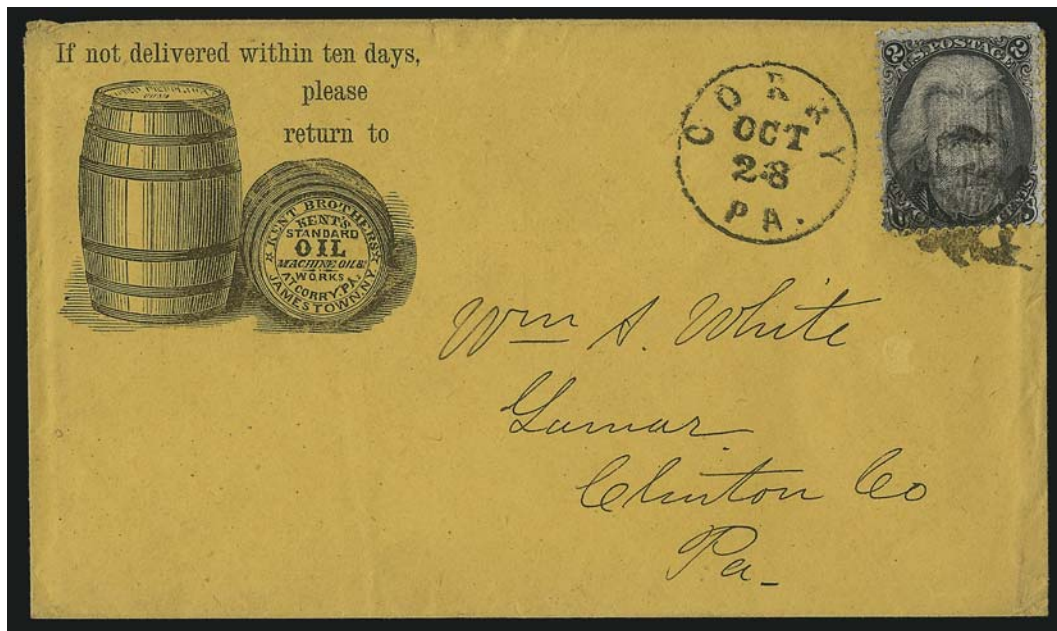 If not delivered within ten days,
please
return to
KENT BROTHERS
KENT'S
STANDARD
OIL
MACHINE OIL &c
WORKS
AT CORRY, PA.
JAMESTOWN, N.Y.
CORRY
OCT
28
PA.
2 U.S. POSTAGE 2
Wm A. White
Lamar
Clinton Co
Pa-